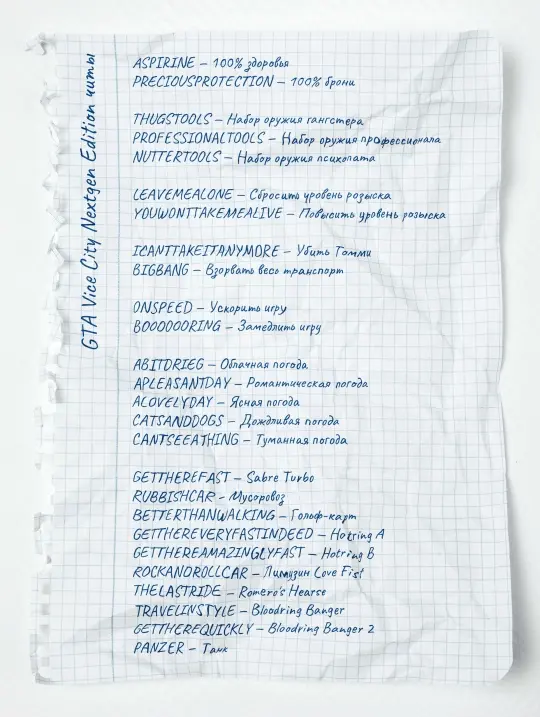 GTA Vice City Nextgen Edition читы
ASPIRINE – 100% здоровья
PRECIOUSPROTECTION – 100% брони
THUGSTOOLS – Набор оружия гангстера
PROFESSIONALTOOLS – Набор оружия профессионала
NUTTERTOOLS – Набор оружия психопата
LEAVEMEALONE – Сбросить уровень розыска
YOUWONTTAKEMEALIVE – Повысить уровень розыска
ICANTTAKEITANYMORE – Убить Томми
BIGBANG – Взорвать весь транспорт
ONSPEED – Ускорить игру
BOOOOOORING – Замедлить игру
ABITDRIEG – Облачная погода
APLEASANTDAY – Романтическая погода
ALOVELYDAY – Ясная погода
CATSANDDOGS – Дождливая погода
CANTSEEATHING – Туманная погода
GETTHEREFAST – Sabre Turbo
RUBBISHCAR – Мусоровоз
BETTERTHANWALKING – Гольф-карт
GETTHEREVERYFASTINDEED – Hotring A
GETTHEREAMAZINGLYFAST – Hotring B
ROCKANDROLLCAR – Лимузин Love Fist
THELASTRIDE – Romero's Hearse
TRAVELINSTYLE – Bloodring Banger
GETTHEREQUICKLY – Bloodring Banger 2
PANZER – Танк